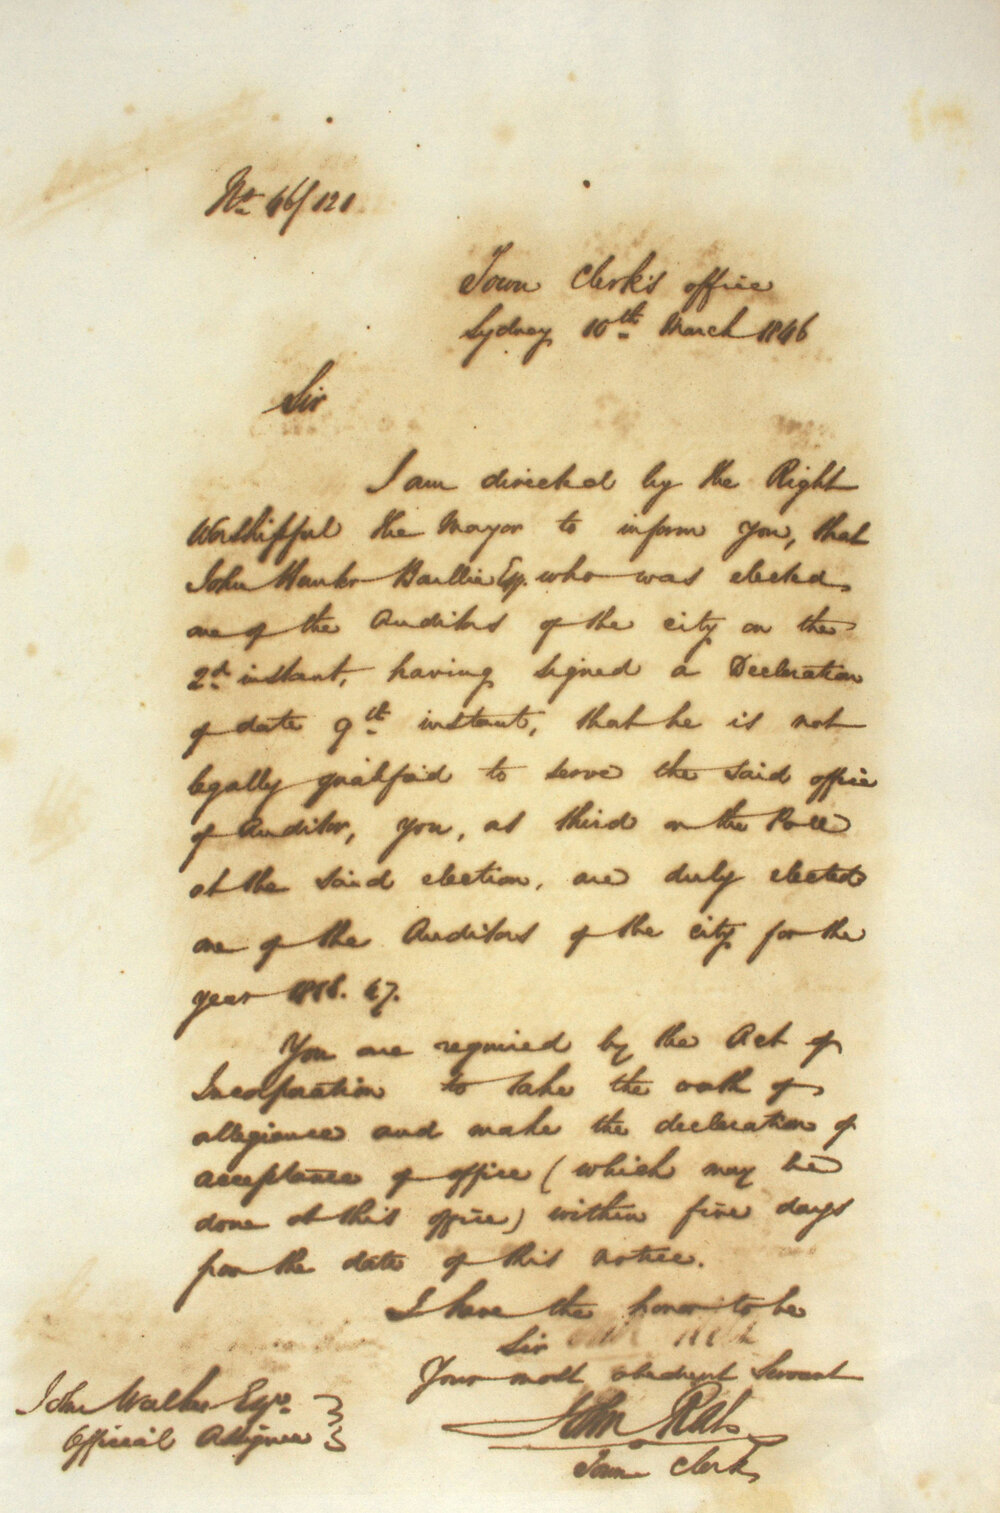 No. 46/121
Town Clerk's office
Sydney 10th March 1846
Sir
I am directed by the Right
Worshipful the Mayor to inform you, that
John Baillie Esq. who was elected
one of the Auditors of the city on the
2d. instant, having signed a Declaration
of date 9th instant, that he is not
legally qualified to serve the said office
of Auditor, you, as third on the Poll
at the said election, are duly elected
one of the Auditors of the city for the
year 1846. 47.
You are required by the Act of
Incorporation to take the oath of
allegiance and make the declaration of
acceptance of office (which may be
done at this office) within five days
from the date of this notice.
I have the honor to be
Sir
Your most obedient Servant
John Rae
Town Clerk
John Walker Esqr.
Official Assignee